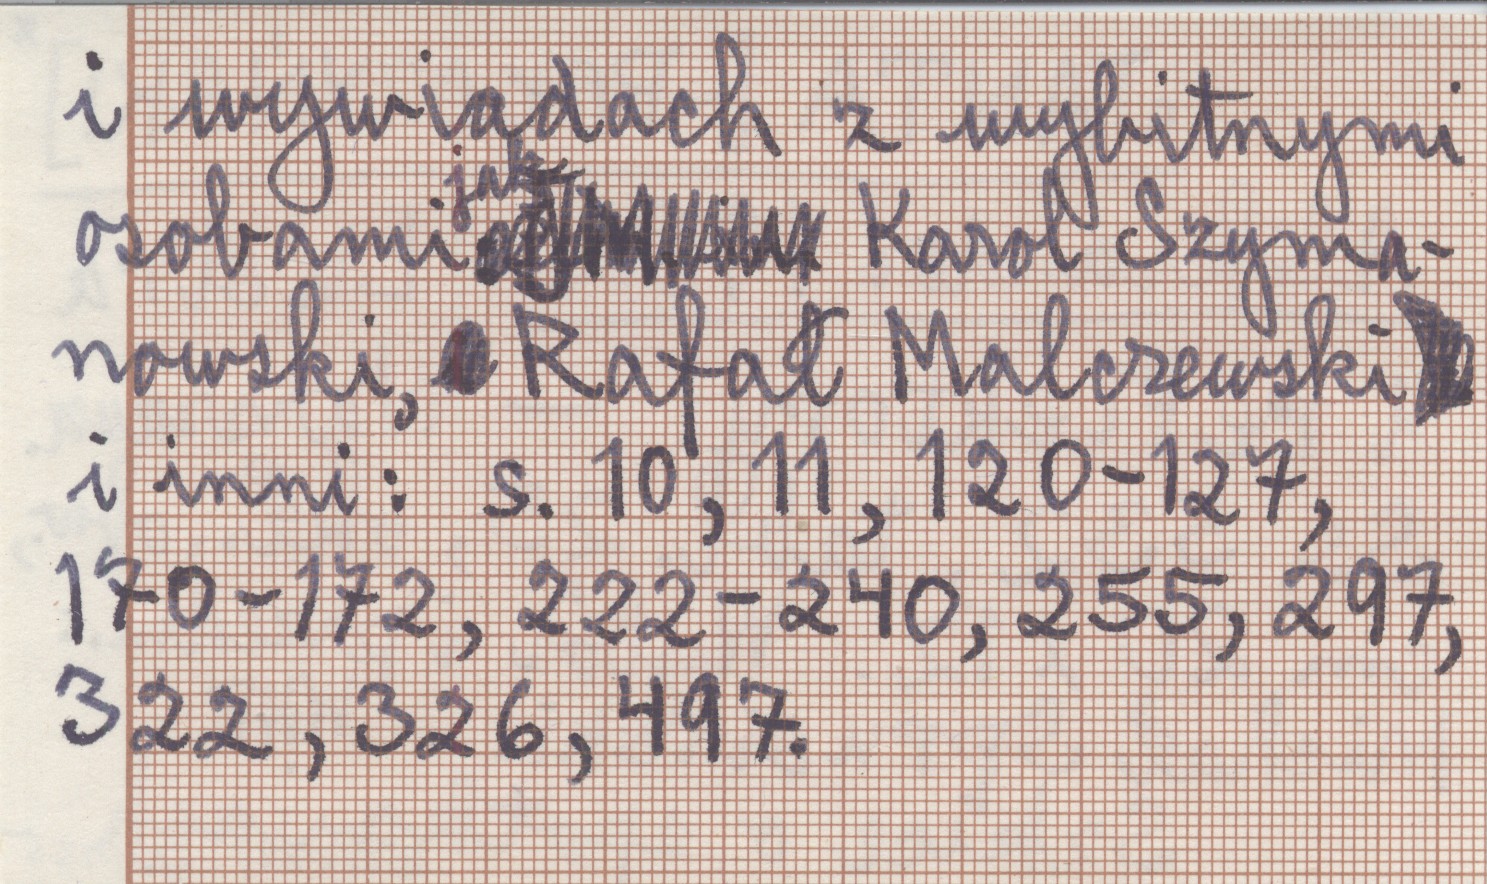 i wywiadach z wybitnymi
osobami jak Karol Szyma-
nowski, Rafał Malczewski
i inni: s. 10, 11, 120-127,
170-172, 222-240, 255, 297,
322, 326, 497.